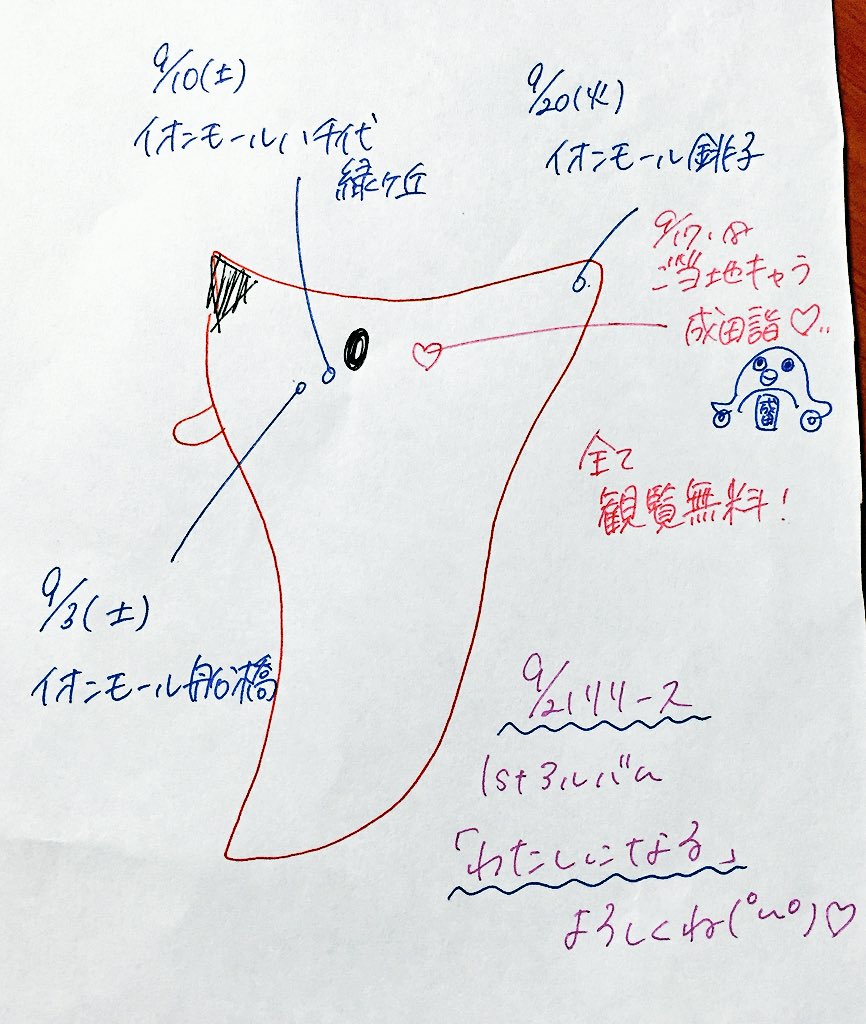 9/10(土)
イオンモール八千代
緑ヶ丘
9/20(火)
イオンモール銚子
9/17、18
ご当地キャラ
成田詣♡..
成田
全て
観覧無料!
9/3(土)
イオンモール船橋
9/21リリース
1stアルバム
「わたしになる」
よろしくね(°ω°)♡